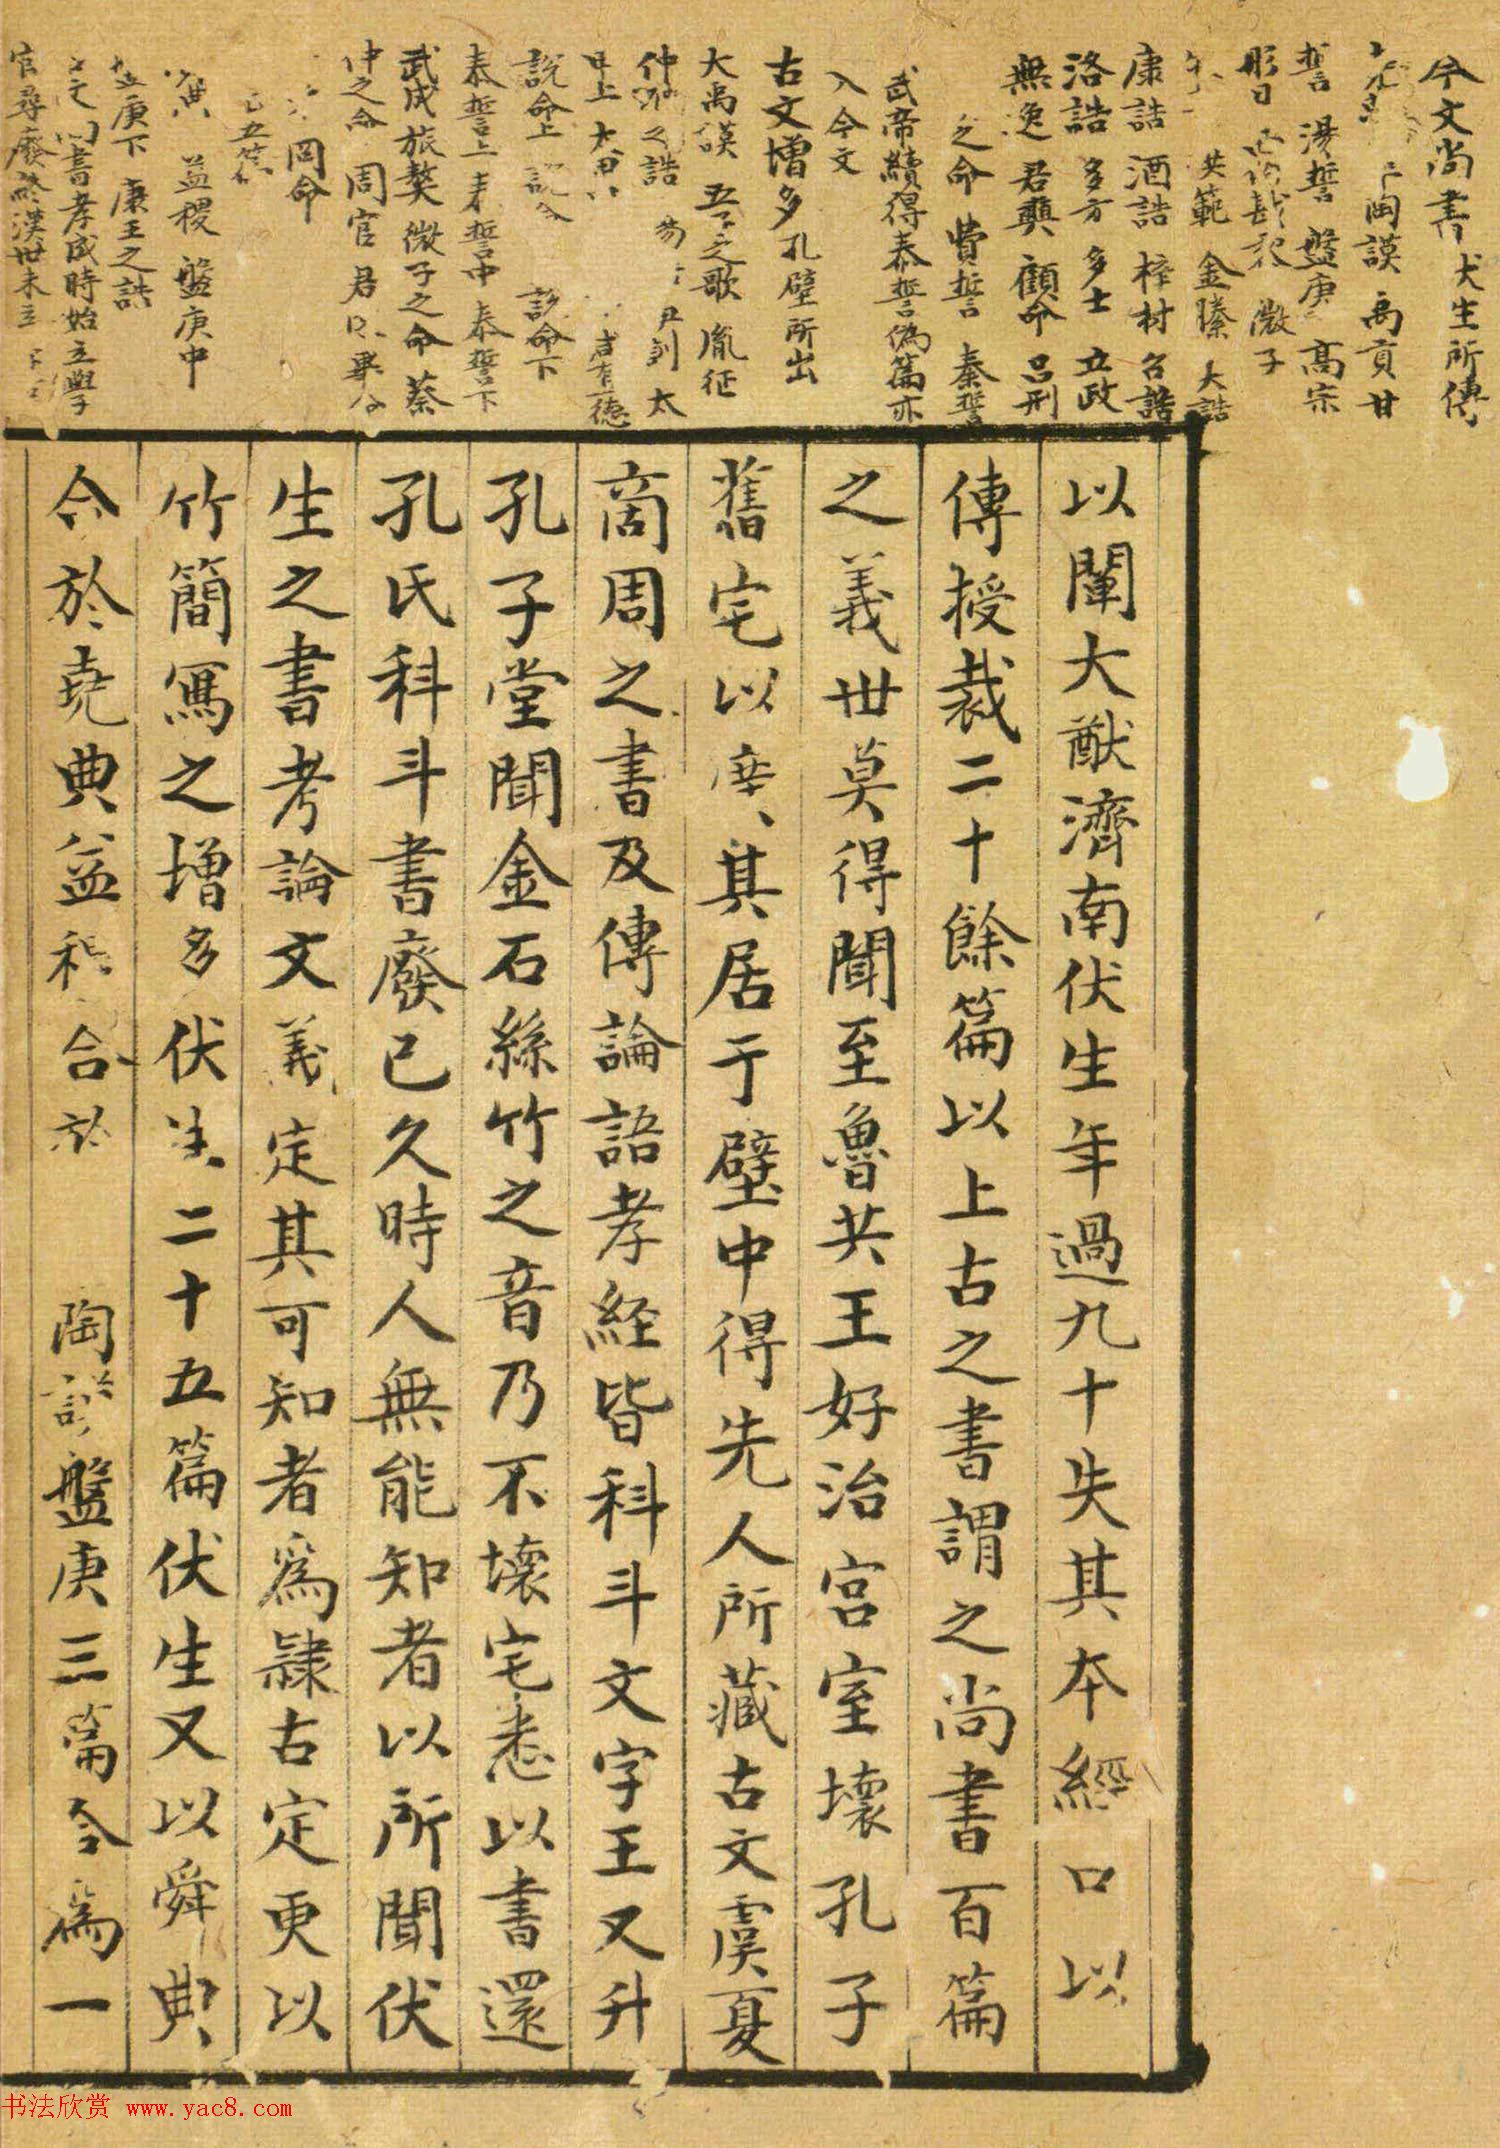 今文尚書 伏生所傳
陶謨 禹貢 甘
誓 湯誓 盤庚 高宗
肜日 微子
範 金縢 大誥
康誥 酒誥 梓材 召誥
洛誥 多方 多士 立政
無逸 君奭 顧命 呂刑
之命 費誓 秦誓
武帝續得泰誓偽篇亦
入今文
古文增多孔壁所出
大禹謨 五 之歌 胤征
仲 之誥 太
甲上 有一德
說命上 說命下
泰誓上 泰誓中 泰誓下
武成 旅獒 微子之命 蔡
仲之命 周官 君
冏命
五篇
益稷 盤庚中
盤庚下 康王之誥
書孝成時始立學
官尋廢終漢世未立
以闡大猷濟南伏生年過九十失其本經口以
傳授裁二十餘篇以上古之書謂之尚書百篇
之義世莫得聞至魯共王好治宮室壞孔子
舊宅以 其居于壁中得先人所藏古文虞夏
商周之書及傳論語孝経皆科斗文字王又升
孔子堂聞金石絲竹之音乃不壞宅悉以書還
孔氏科斗書廢已久時人無能知者以所聞伏
生之書考論文義定其可知者為隸古定更以
竹簡寫之增多伏生二十五篇伏生又以舜典
合於堯典益稷合於 陶謨盤庚三篇合為一
书法欣赏 www.yac8.com